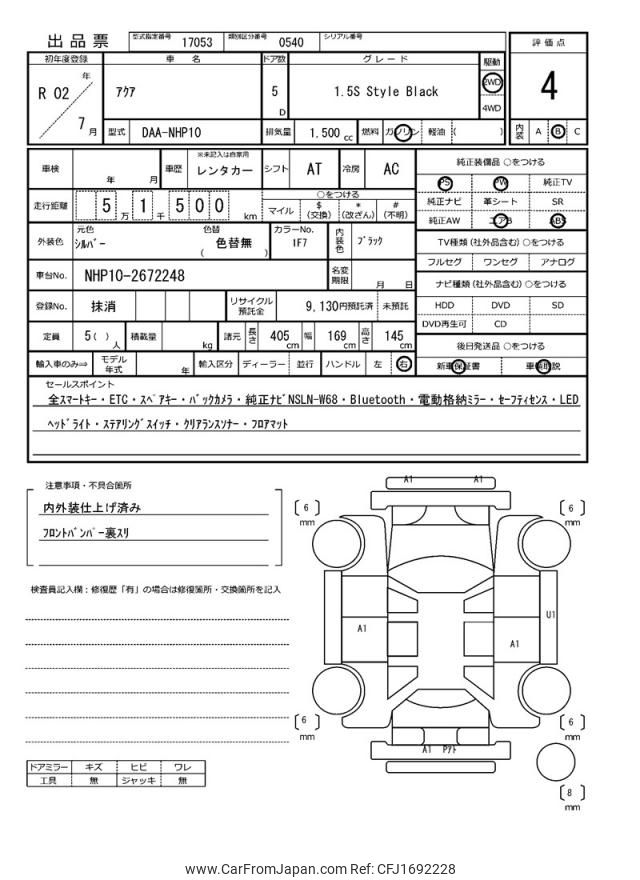 出品票 型式指定番号 17053 類別区分番号 0540 シリアル番号
初年度登録 車 名 ドア数 グレード 駆動 評価点
R 02 年 7 月 アクア 5 D 1.5S Style Black 2WD 4WD 4
型式 DAA-NHP10 排気量 1,500 cc 燃料 ガソリン 軽油 ( ) 内装 A B C
車検 年 月 車歴 ※未記入は自家用 レンタカー シフト AT 冷房 AC
走行距離 5 万 1 千 5 0 0 km ○をつける マイル $ (交換) * (改ざん) # (不明)
外装色 元色 シルバー 色替 ( 色替無 ) カラーNo. 1F7 内装色 ブラック
車台No. NHP10-2672248 名変期限 月 日
登録No. 抹消 リサイクル預託金 9,130円預託済 未預託
定員 5( ) 人 積載量 kg 諸元 長さ 405 cm 幅 169 cm 高さ 145 cm
輸入車のみ⇒ モデル年式 年 輸入区分 ディーラー 並行 ハンドル 左 右
純正装備品 ○をつける
PS PW 純正TV
純正ナビ 革シート SR
純正AW エアB ABS
TV種類(社外品含む) ○をつける
フルセグ ワンセグ アナログ
ナビ種類(社外品含む) ○をつける
HDD DVD SD
DVD再生可 CD
後日発送品 ○をつける
新車保証書 車輌取説
セールスポイント
全スマートキー・ETC・スペアキー・バックカメラ・純正ナビNSLN-W68・Bluetooth・電動格納ミラー・セーフティセンス・LED
ヘッドライト・ステアリングスイッチ・クリアランスソナー・フロアマット
注意事項・不具合箇所
内外装仕上げ済み
フロントバンパー裏スリ
検査員記入欄:修復歴「有」の場合は修復箇所・交換箇所を記入
A1 A1
[ 6 ] mm [ 6 ] mm
A1 A1 U1
[ 6 ] mm [ 6 ] mm
A1 Pアト
[ 8 ] mm
ドアミラー キズ ヒビ ワレ
工具 無 ジャッキ 無
www.CarFromJapan.com Ref: CFJ1692228